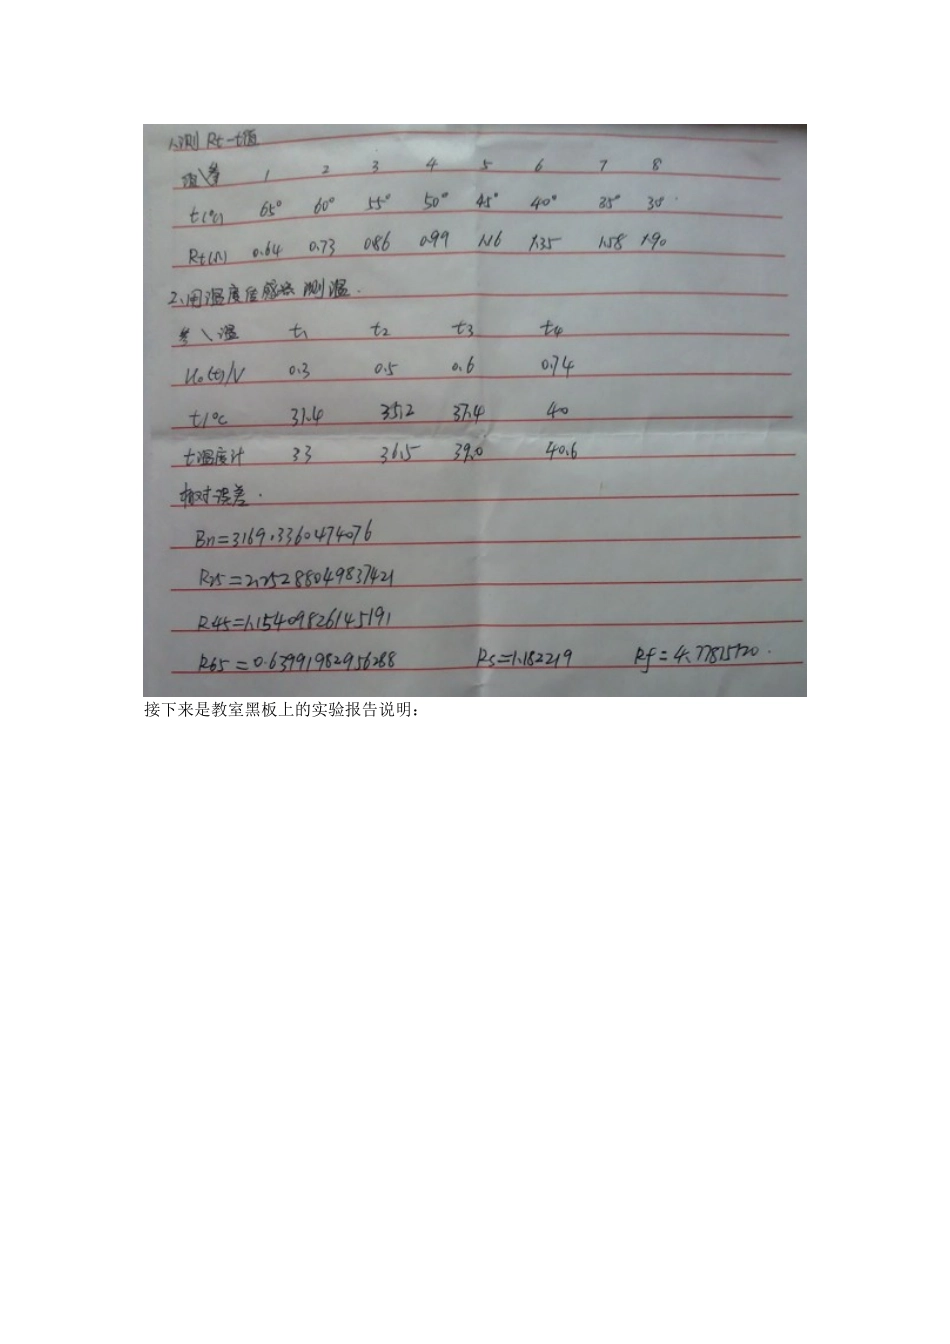 1、测Rt-t值
值\参 1 2 3 4 5 6 7 8
t(℃) 65° 60° 55° 50° 45° 40° 35° 30°
Rt(Ω) 0.64 0.73 0.86 0.99 1.16 1.35 1.58 1.90
2、用温度传感器测温.
参\温 t1 t2 t3 t4
U0(t)/V 0.3 0.5 0.6 0.74
t/℃ 31.4 35.2 37.4 40
t温度计 33 36.5 39.0 40.6
相对误差.
Bn=3169.3360474076
R25=2.25288049837421
R45=1.15409826145191
R65=0.63991982956288 Rs=1.182219 Rf=4.7781
接下来是教室黑板上的实验报告说明：